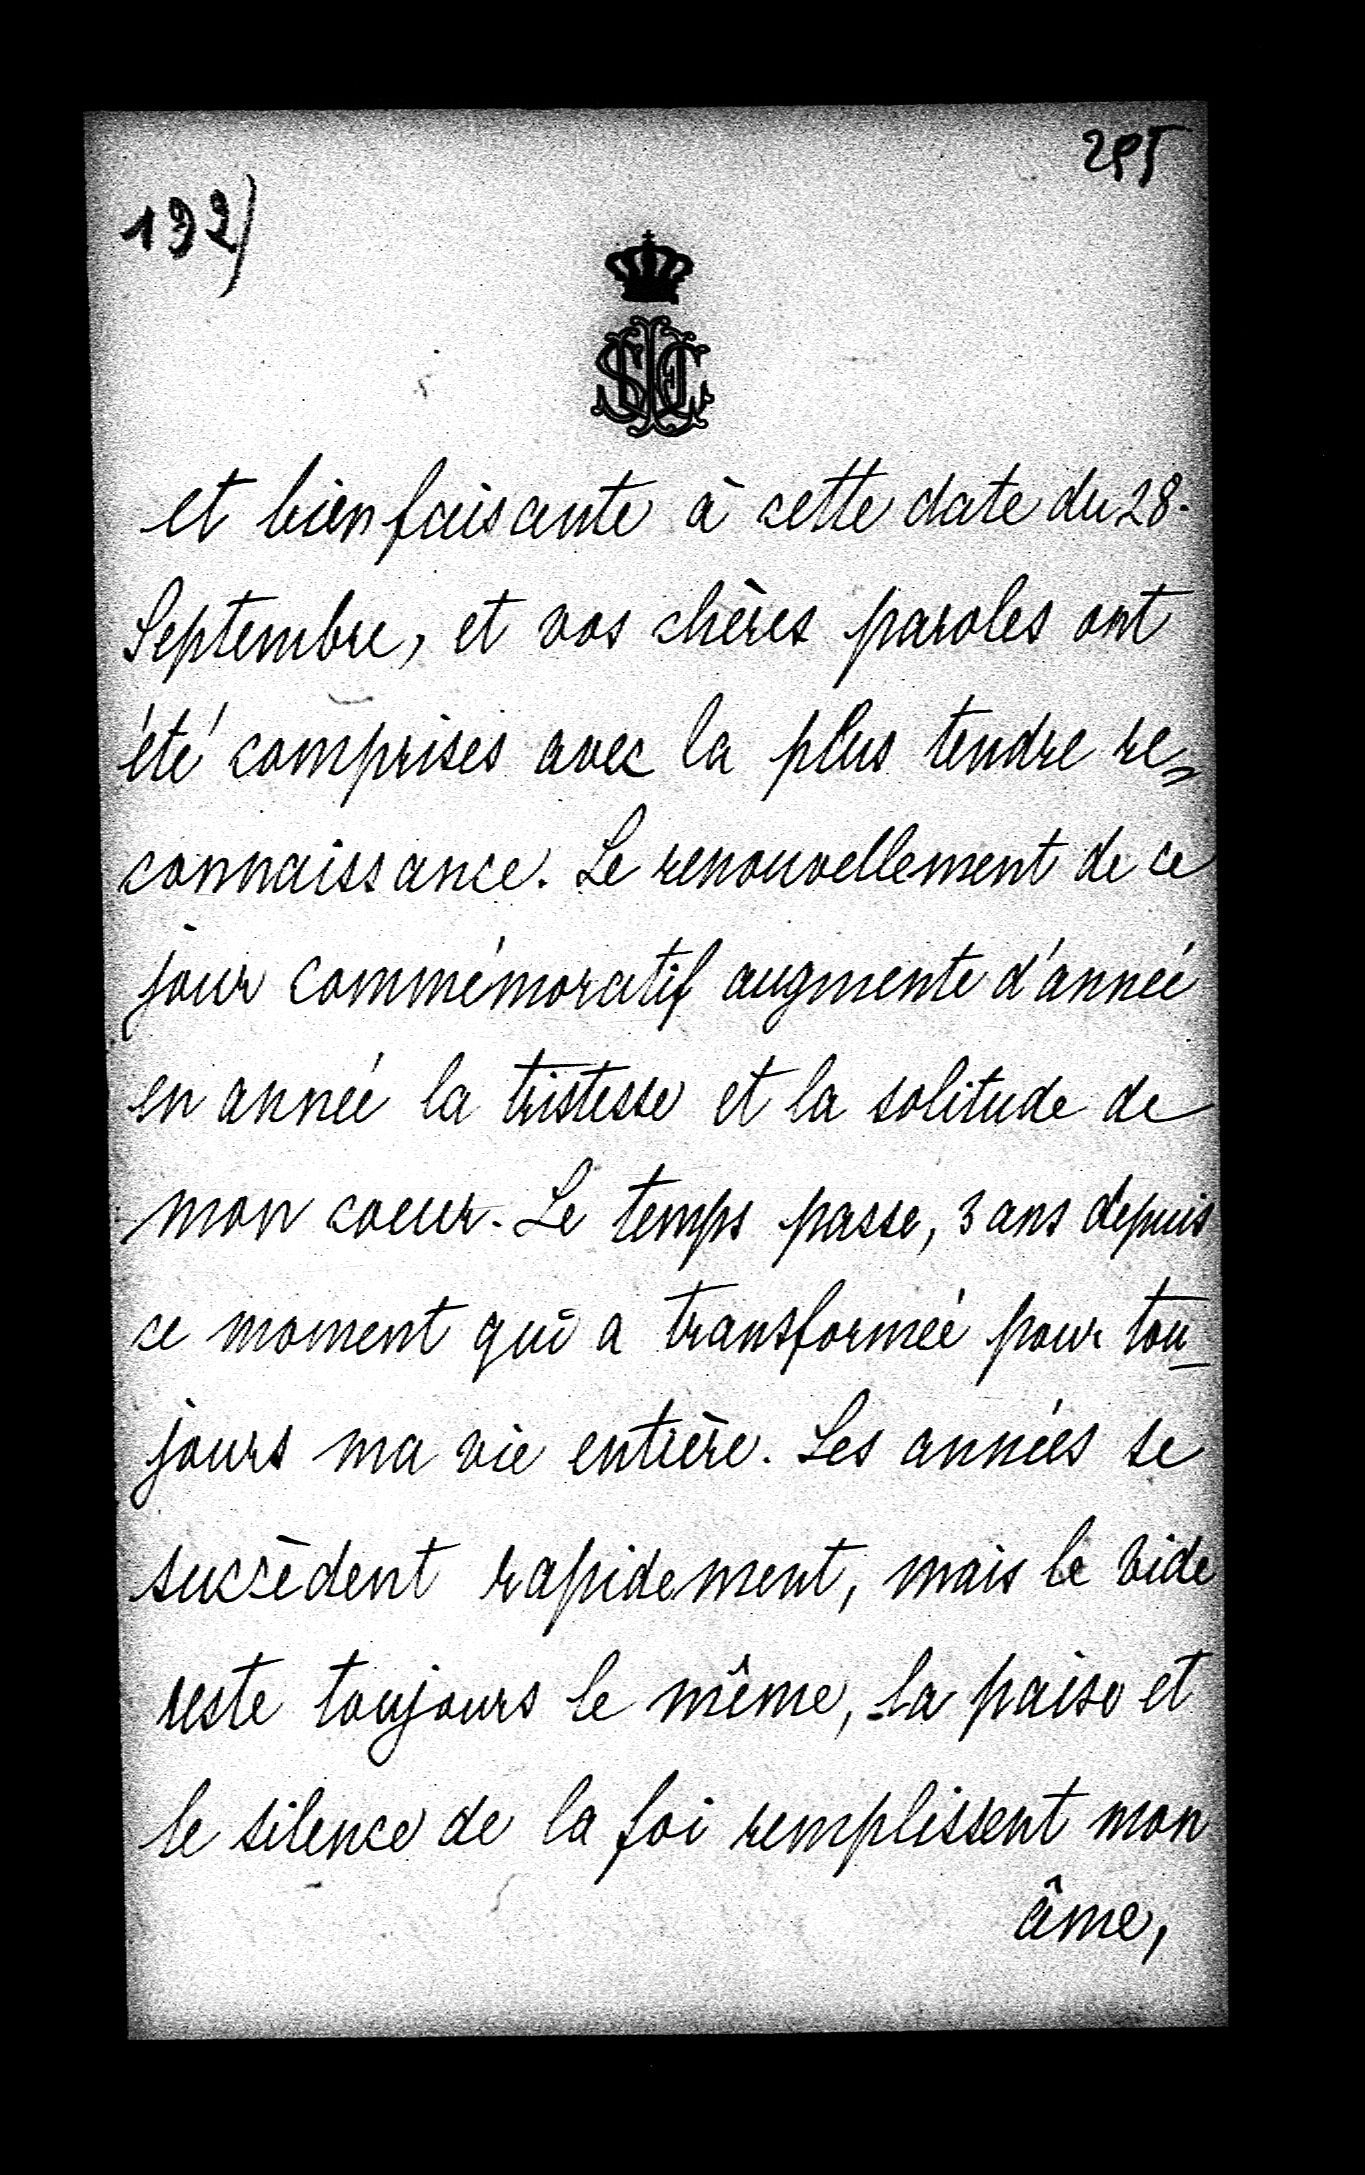 192)
et bienfaisante à cette date du 28.
Septembre, et vos chères paroles ont
été comprises avec la plus tendre re=
connaissance. Le renouvellement de ce
jour commémoratif augmente d'année
en année la tristesse et la solitude de
mon coeur. Le temps passe, 3 ans depuis
ce moment qui a transformée pour tou-
jours ma vie entière. Les années se
succèdent rapidement, mais le vide
reste toujours le même, la paix et
le silence de la foi remplissent mon
âme,